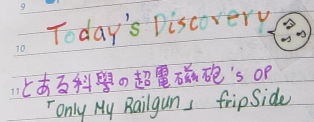 9
Today's Discovery
10
11 とある科學の超電磁砲's OP
「Only My Railgun」 fripSide